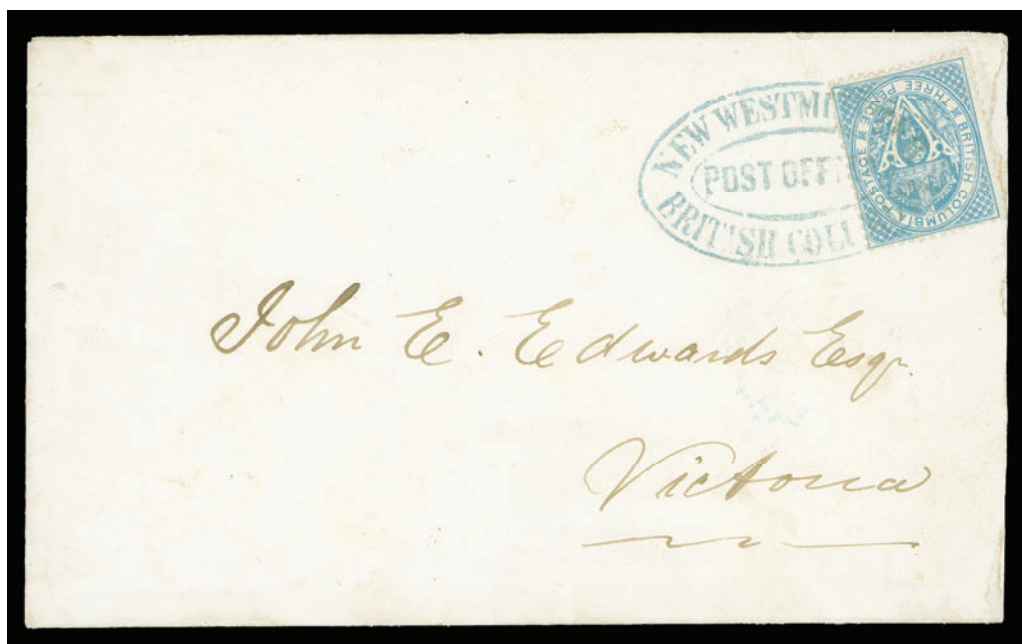 NEW WESTMI
POST OFF
BRITISH COLU
BRITISH COLUMBIA POSTAGE THREE PENCE
John E. Edwards Esqr.
Victoria